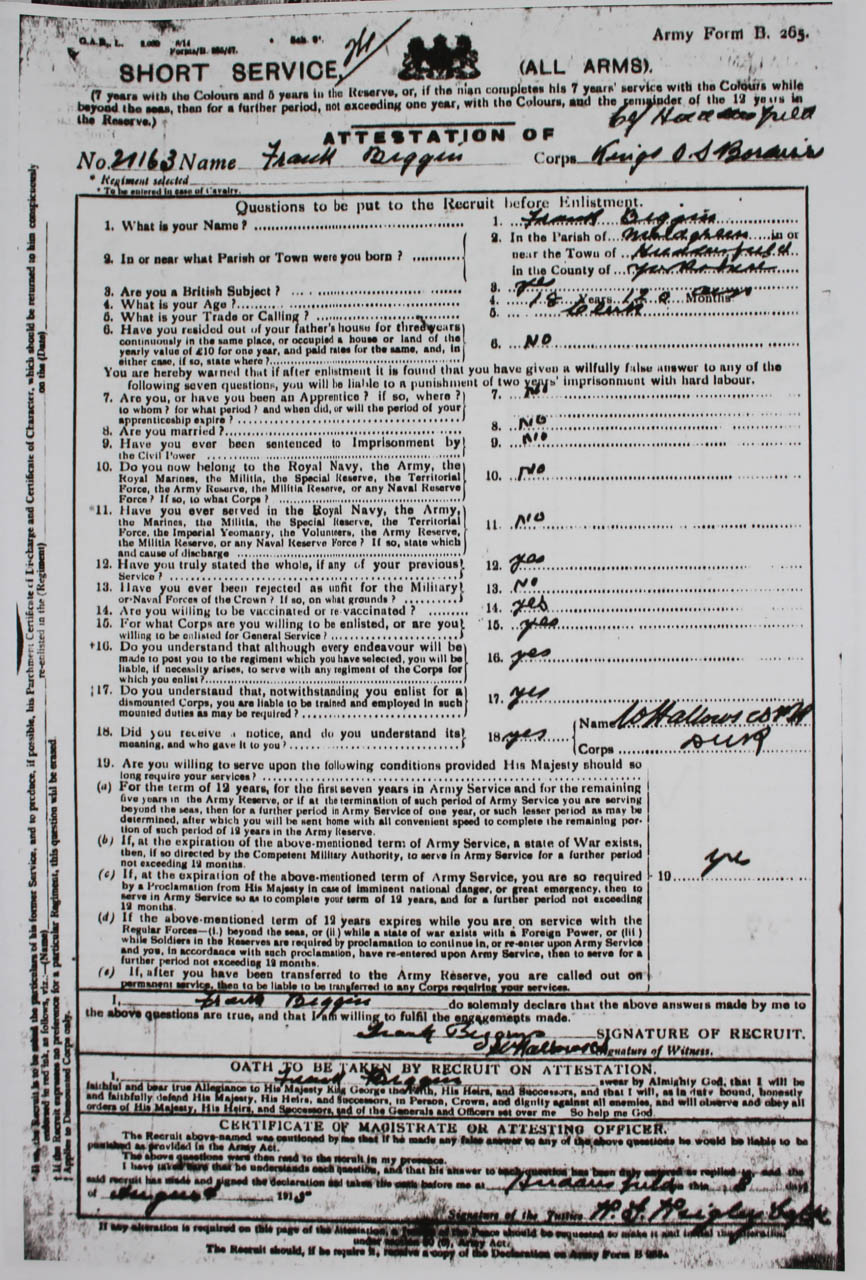 G.A.R., L. 5,000 8/14 Sch. 9.
Forms/B. 265/47.
Army Form B. 265.
SHORT SERVICE,
(ALL ARMS).
(7 years with the Colours and 5 years in the Reserve, or, if the man completes his 7 years' service with the Colours while
beyond the seas, then for a further period, not exceeding one year, with the Colours, and the remainder of the 12 years in
the Reserve.)
Huddersfield
ATTESTATION OF
No. 21163 Name Frank Biggin Corps Kings O S Borderers
* Regiment selected
* To be entered in case of Cavalry.
Questions to be put to the Recruit before Enlistment.
1. What is your Name? 1. Frank Biggin
2. In or near what Parish or Town were you born? 2. In the Parish of in or
near the Town of Huddersfield
in the County of Yorkshire
3. Are you a British Subject? 3. yes
4. What is your Age? 4. 18 Years Months
5. What is your Trade or Calling? 5. Clerk
6. Have you resided out of your father's house for three years
continuously in the same place, or occupied a house or land of the
yearly value of £10 for one year, and paid rates for the same, and, in
either case, if so, state where? 6. No
You are hereby warned that if after enlistment it is found that you have given a wilfully false answer to any of the
following seven questions, you will be liable to a punishment of two years' imprisonment with hard labour.
7. Are you, or have you been an Apprentice? if so, where? 7. No
to whom? for what period? and when did, or will the period of your
apprenticeship expire?
8. Are you married? 8. No
9. Have you ever been sentenced to Imprisonment by
the Civil Power 9. No
10. Do you now belong to the Royal Navy, the Army, the
Royal Marines, the Militia, the Special Reserve, the Territorial
Force, the Army Reserve, the Militia Reserve, or any Naval Reserve
Force? If so, to what Corps? 10. No
*11. Have you ever served in the Royal Navy, the Army,
the Marines, the Militia, the Special Reserve, the Territorial
Force, the Imperial Yeomanry, the Volunteers, the Army Reserve,
the Militia Reserve, or any Naval Reserve Force? If so, state which
and cause of discharge 11. No
12. Have you truly stated the whole, if any of your previous
Service? 12. yes
13. Have you ever been rejected as unfit for the Military
or Naval Forces of the Crown? If so, on what grounds? 13. No
14. Are you willing to be vaccinated or re-vaccinated? 14. yes
15. For what Corps are you willing to be enlisted, or are you
willing to be enlisted for General Service? 15. yes
†16. Do you understand that although every endeavour will be
made to post you to the regiment which you have selected, you will be
liable, if necessity arises, to serve with any regiment of the Corps for
which you enlist? 16. yes
‡17. Do you understand that, notwithstanding you enlist for a
dismounted Corps, you are liable to be trained and employed in such
mounted duties as may be required? 17. yes
18. Did you receive a notice, and do you understand its
meaning, and who gave it to you? 18. yes
Name W Hallows
Corps
19. Are you willing to serve upon the following conditions provided His Majesty should so
long require your services?
(a) For the term of 12 years, for the first seven years in Army Service and for the remaining
five years in the Army Reserve, or if at the termination of such period of Army Service you are serving
beyond the seas, then for a further period in Army Service of one year, or such lesser period as may be
determined, after which you will be sent home with all convenient speed to complete the remaining por-
tion of such period of 12 years in the Army Reserve.
(b) If, at the expiration of the above-mentioned term of Army Service, a state of War exists,
then, if so directed by the Competent Military Authority, to serve in Army Service for a further period
not exceeding 12 months.
(c) If, at the expiration of the above-mentioned term of Army Service, you are so required
by a Proclamation from His Majesty in case of imminent national danger, or great emergency, then to
serve in Army Service so as to complete your term of 12 years, and for a further period not exceeding
12 months.
19. yes
(d) If the above-mentioned term of 12 years expires while you are on service with the
Regular Forces—(i.) beyond the seas, or (ii) while a state of war exists with a Foreign Power, or (iii)
while Soldiers in the Reserves are required by proclamation to continue in, or re-enter upon Army Service
and you, in accordance with such proclamation, have re-entered upon Army Service, then to serve for a
further period not exceeding 12 months.
(e) If, after you have been transferred to the Army Reserve, you are called out on
permanent service, then to be liable to be transferred to any Corps requiring your services.
I, Frank Biggin do solemnly declare that the above answers made by me to
the above questions are true, and that I am willing to fulfil the engagements made.
Frank Biggin SIGNATURE OF RECRUIT.
W Hallows Signature of Witness.
OATH TO BE TAKEN BY RECRUIT ON ATTESTATION.
I, Frank Biggin swear by Almighty God, that I will be
faithful and bear true Allegiance to His Majesty King George the Fifth, His Heirs, and Successors, and that I will, as in duty bound, honestly
and faithfully defend His Majesty, His Heirs, and Successors, in Person, Crown, and dignity against all enemies, and will observe and obey all
orders of His Majesty, His Heirs, and Successors, and of the Generals and Officers set over me So help me God.
CERTIFICATE OF MAGISTRATE OR ATTESTING OFFICER.
The Recruit above-named was cautioned by me that if he made any false answer to any of the above questions he would be liable to be
punished as provided in the Army Act.
The above questions were then read to the recruit in my presence.
I have taken care that he understands each question, and that his answer to each question has been duly entered as replied to, and the
said recruit has made and signed the declaration and taken the oath before me at Huddersfield on this 8 day
of August 1915
Signature of the Justice
If any alteration is required on this page of the Attestation, a Justice of the Peace should be requested to make it and initial the alteration
under section 80 (6), Army Act.
The Recruit should, if he require it, receive a copy of the Declaration on Army Form B 265a.
* If so, the Recruit is to be asked the particulars of his former Service, and to produce, if possible, his Parchment Certificate of Discharge and Certificate of Character, which should be returned to him conspicuously
endorsed in red ink, as follows, viz.:—(Name) re-enlisted in the (Regiment) on the (Date)
† If the Recruit expresses no preference for a particular Regiment, this question will be erased.
‡ Applies to Dismounted Corps only.